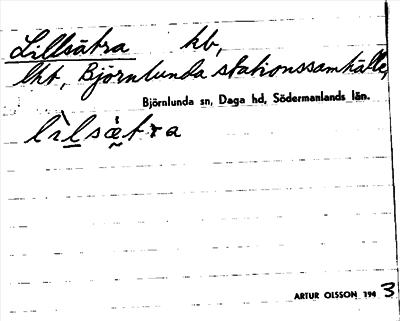 Lillsätra hb,
lht, Björnlunda stationssamhälle,
Björnlunda sn, Daga hd, Södermanlands län.
lìlsæ̀tra
ARTUR OLSSON 194 3